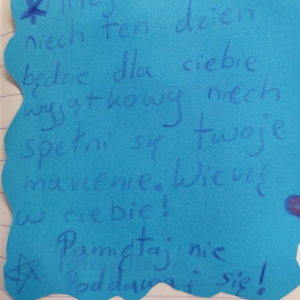 niech ten dzień
będzie dla ciebie
wyjątkowy niech
spełni się twoje
marzenie. Wierzę
w ciebie!
Pamiętaj nie
Poddawaj się!